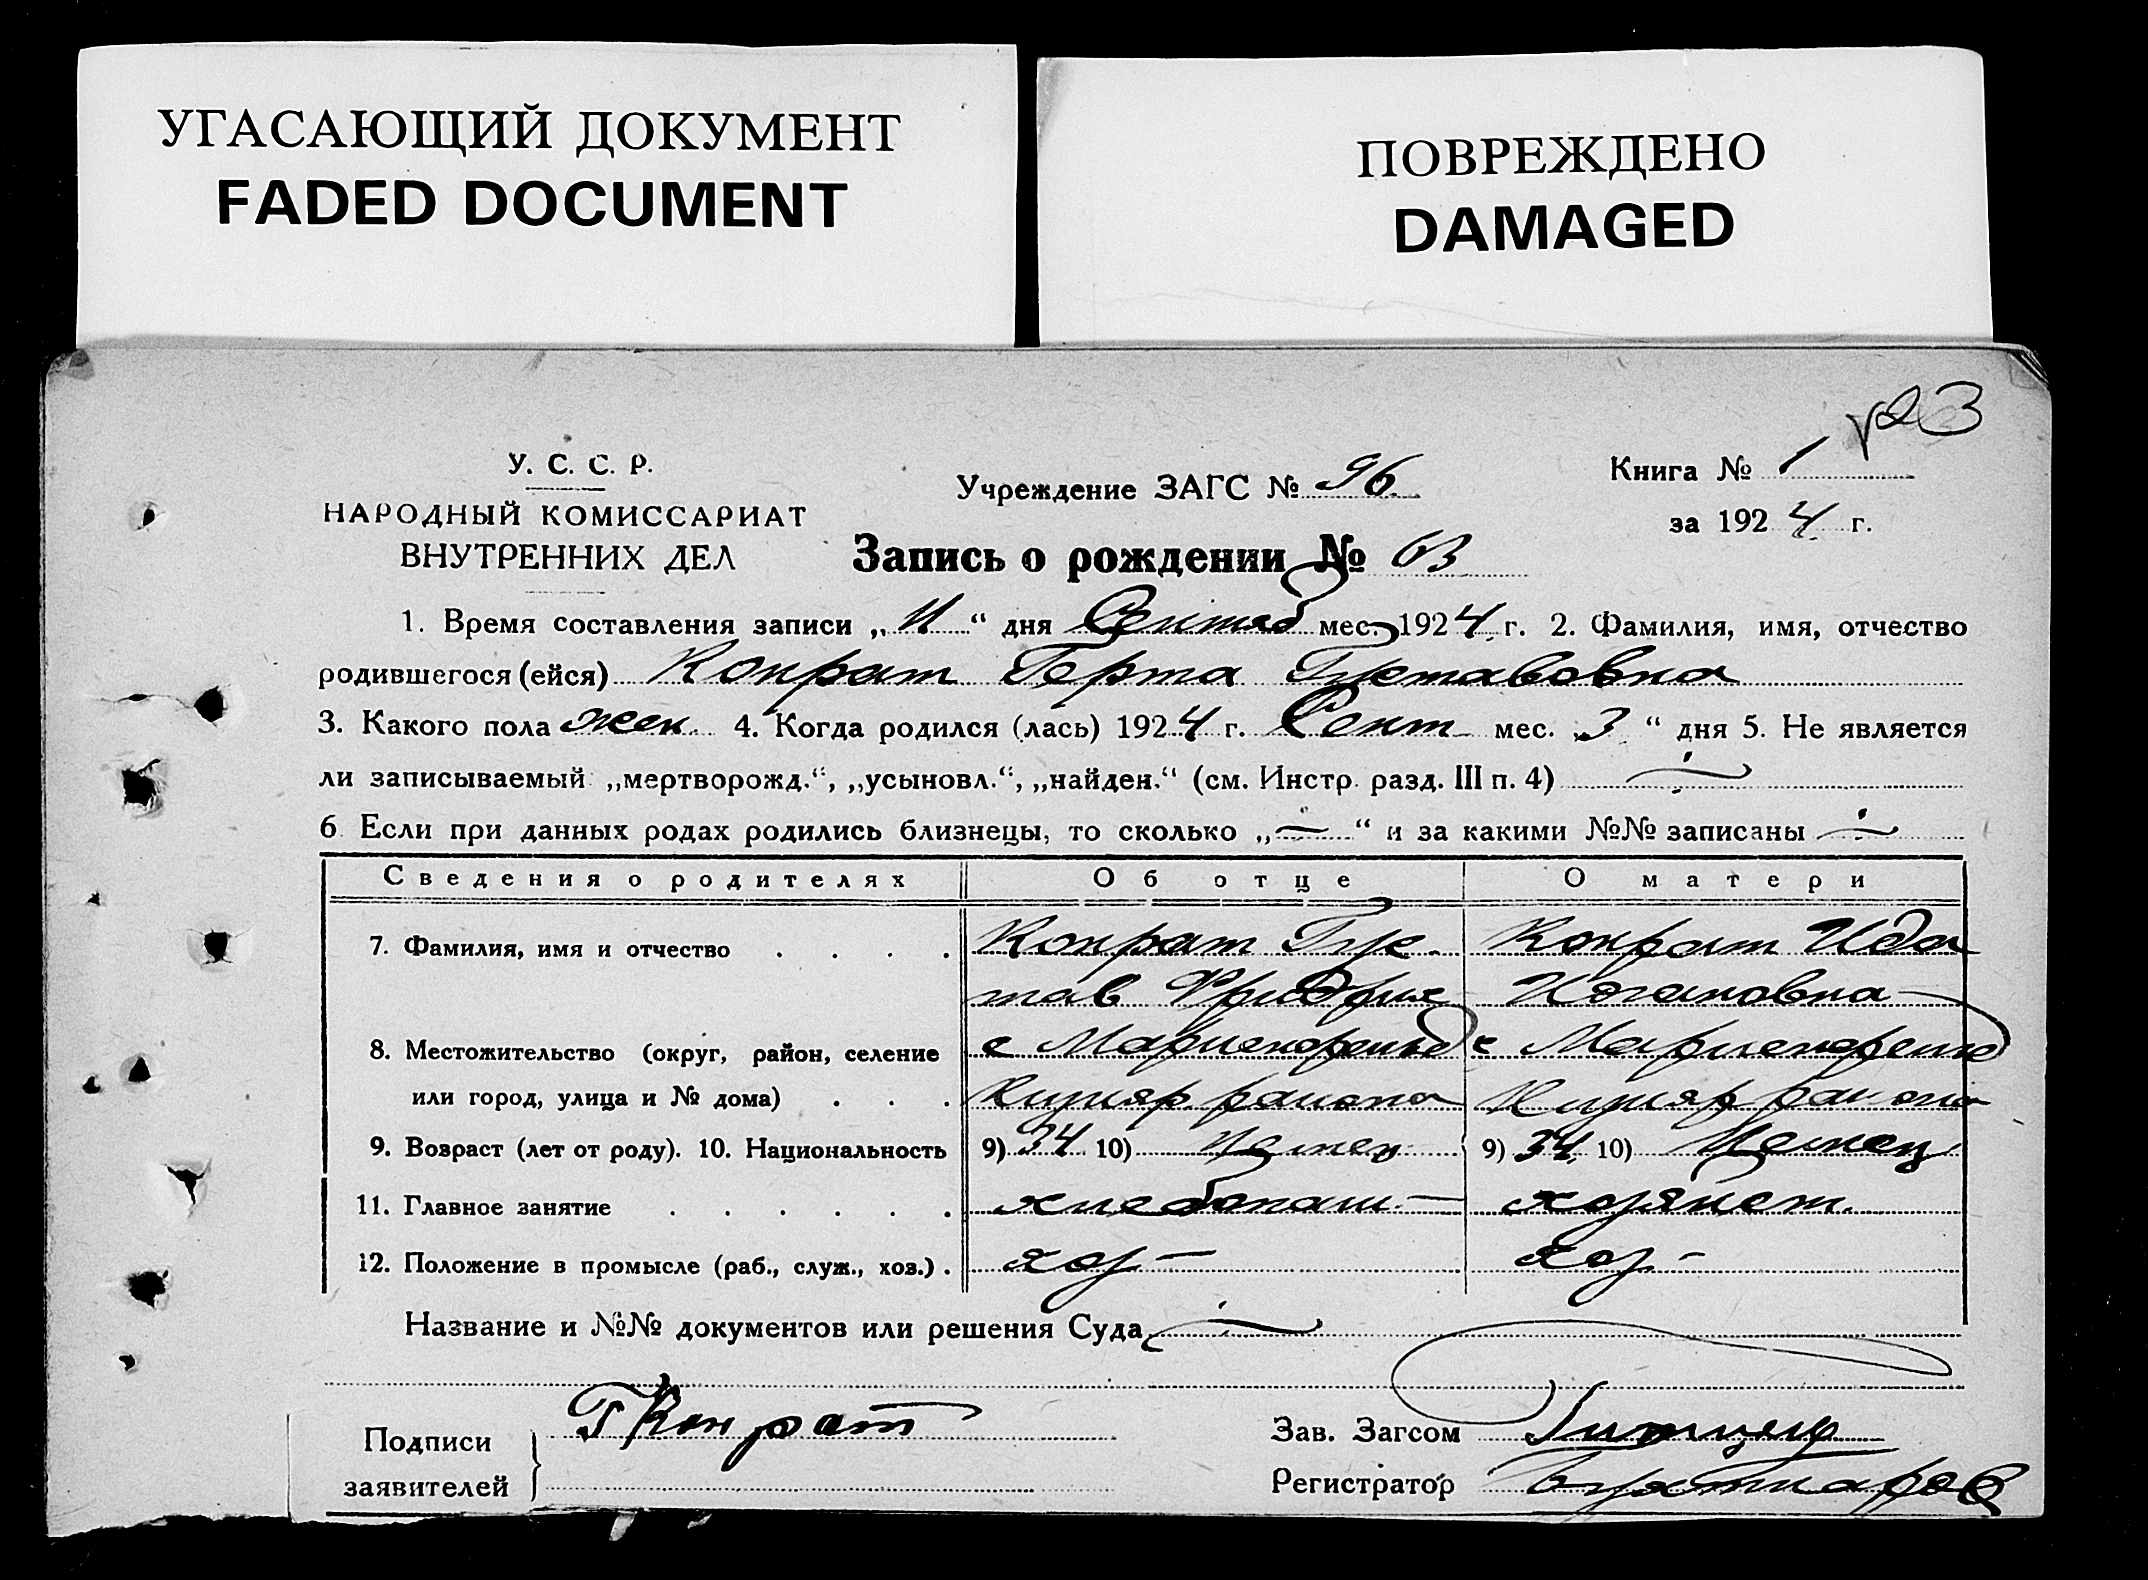 УГАСАЮЩИЙ ДОКУМЕНТ
FADED DOCUMENT
ПОВРЕЖДЕНО
DAMAGED
23
У. С. С. Р.
НАРОДНЫЙ КОМИССАРИАТ
ВНУТРЕННИХ ДЕЛ
Учреждение ЗАГС № 96
Книга № 1
за 1924 г.
Запись о рождении № 63
1. Время составления записи „11“ дня Сентяб мес. 1924 г. 2. Фамилия, имя, отчество
родившегося (ейся) Конрат Герта Густавовна
3. Какого пола жен. 4. Когда родился (лась) 1924 г. Сент мес. „3“ дня 5. Не является
ли записываемый „мертворожд.“, „усыновл.“, „найден.“ (см. Инстр. разд. III п. 4) ÷
6 Если при данных родах родились близнецы, то сколько „÷“ и за какими №№ записаны ÷
Сведения о родителях Об отце О матери
7. Фамилия, имя и отчество . . . . Конрат Гус- Конрат Ида
тав Фридрих Иогановна
8. Местожительство (округ, район, селение с Мариенфельд с Мариенфельд
или город, улица и № дома) . . . района района
9. Возраст (лет от роду). 10. Национальность 9) 34 10) Немец 9) 34 10) Немец
11. Главное занятие . . . . . . хлебопаш.- хозяйст.
12. Положение в промысле (раб., служ., хоз.) . хоз - хоз -
Название и №№ документов или решения Суда ÷
Подписи
заявителей
Г Конрат
Зав. Загсом
Регистратор